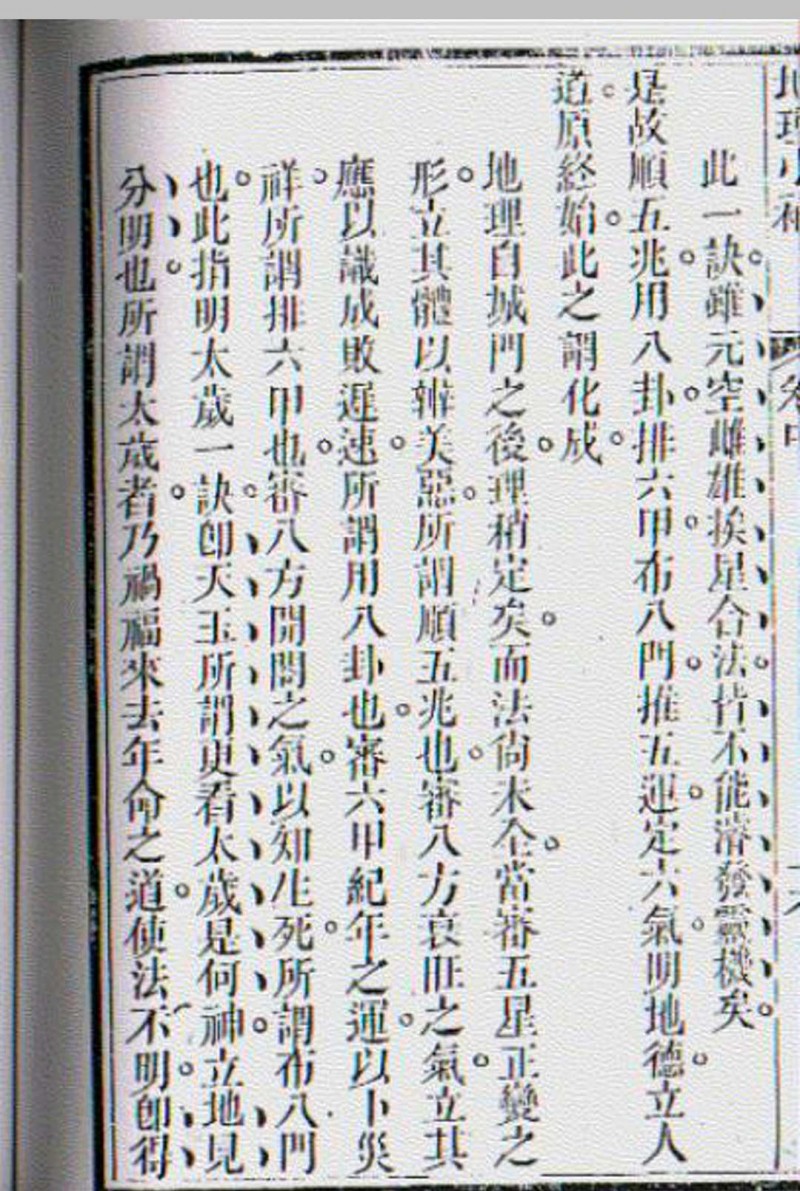 地理小補 卷中
此一訣雖元空雌雄挨星合法皆不能清發靈機矣
是故順五兆用八卦排六甲布八門推五運定六氣明地德立人
道原經始此之謂化成
地理自城門之後理稍定矣而法尚未全當審五星正變之
形立其體以辨美惡所謂順五兆也審八方衰旺之氣立其
應以識成敗遲速所謂用八卦也審六甲紀年之運以卜災
祥所謂排六甲也審八方開閉之氣以知生死所謂布八門
也此指明太歲一訣卽天玉所謂更看太歲是何神立地見
分明也所謂太歲者乃禍福來去年命之道使法不明卽得